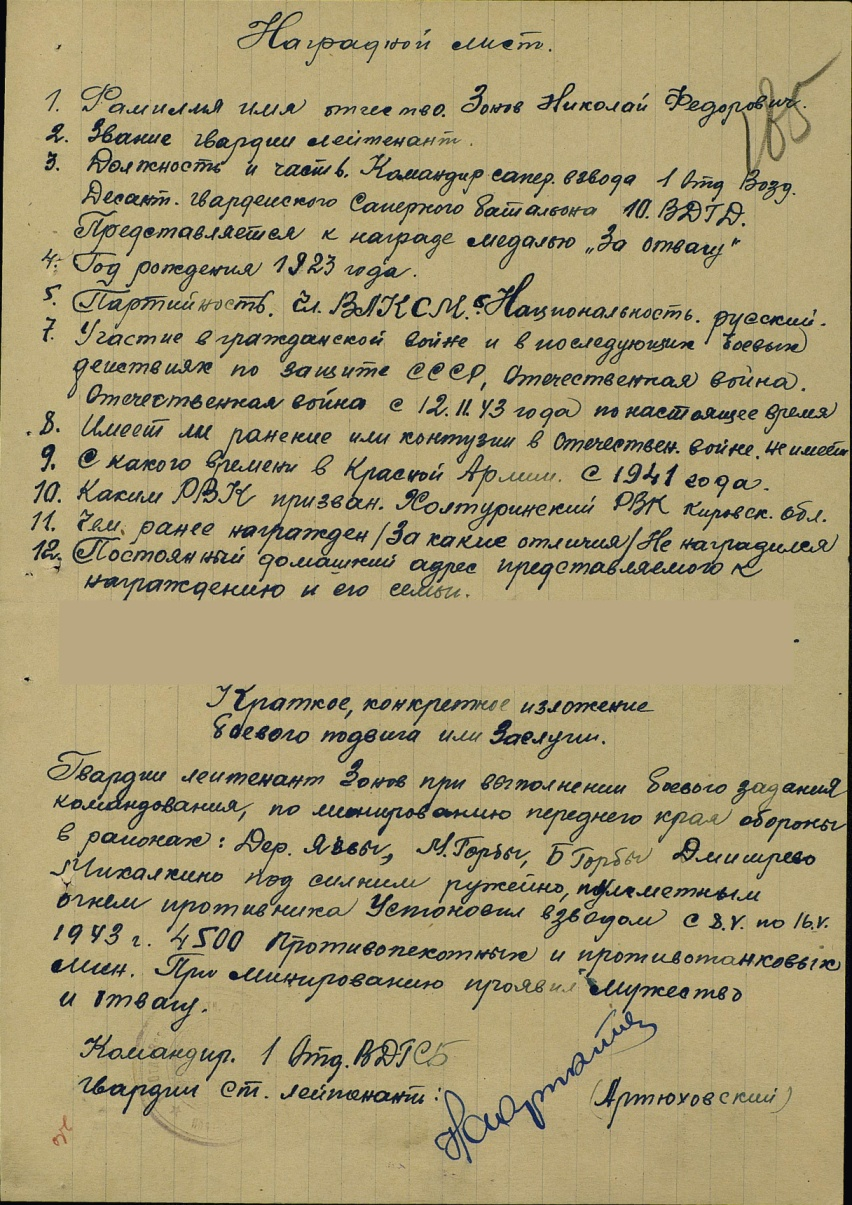 Наградной лист.
185
1. Фамилия имя отчество. Зонов Николай Федорович.
2. Звание гвардии лейтенант.
3. Должность и часть. Командир сапер. взвода 1 Отд Возд.
Десант. гвардейского Саперного батальона 10. ВДГД.
Представляется к награде медалью „За отвагу"
4. Год рождения 1923 года.
5. Партийность. Чл. ВЛКСМ. 6. Национальность. русский.
7. Участие в гражданской войне и в последующих боевых
действиях по защите СССР, Отечественная война.
Отечественная война с 12.II.43 года по настоящее время
8. Имеет ли ранение или контузии в Отечествен. войне. не имеет
9. С какого времени в Красной Армии. С 1941 года.
10. Каким РВК призван. Халтуринский РВК Кировск. обл.
11. Чем ранее награжден /За какие отличия/ Не наградился
12. Постоянный домашний адрес представляемого к
награждению и его семьи.
Краткое, конкретное изложение
боевого подвига или Заслуги.
Гвардии лейтенант Зонов при выполнении боевого задания
командования, по минированию переднего края обороны
в районах: Дер. Язвы, М. Горбы, Б Горбы Дмитрево
Михалкино под силним ружейно, пулеметным
огнем противника Установил взводом с 8.V. по 16.V.
1943 г. 4500 Противопехотных и противотанковых
мин. При минированию проявил мужество
и отвагу.
Командир. 1 Отд. ВДГСБ
гвардии ст. лейтенант: (Артюховский)